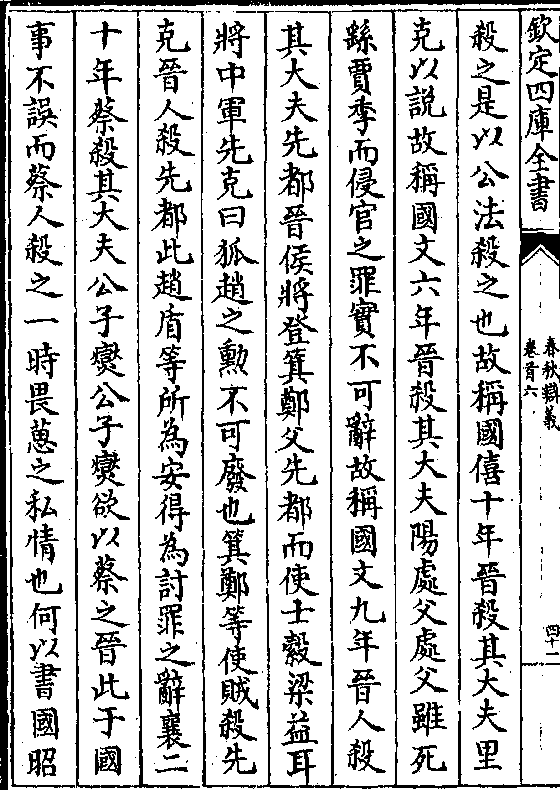 欽定四庫全書
春秋辯義
卷首六
四十
殺之是以公法殺之也故稱國僖十年晉殺其大夫里
克以説故稱國文六年晉殺其大夫陽處父處父雖死
繇賈季而侵官之罪實不可辭故稱國文九年晉人殺
其大夫先都晉侯將登箕鄭父先都而使士縠梁益耳
將中軍先克曰狐趙之勲不可廢也箕鄭等使賊殺先
克晉人殺先都此趙盾等所為安得為討罪之辭襄二
十年蔡殺其大夫公子燮公子燮欲以蔡之晉此于國
事不誤而蔡人殺之一時畏葸之私情也何以書國昭